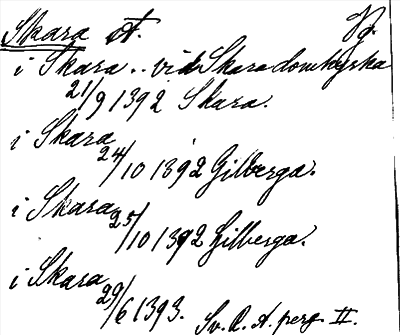 Skara st. Vg.
i Skara .. vid Skara domkyrka
21/9 1392 Skara.
i Skara
24/10 1392 Gilberga.
i Skara
25/10 1392 Gilberga.
i Skara
29/6 1393. Sv. R. A. perg. II.